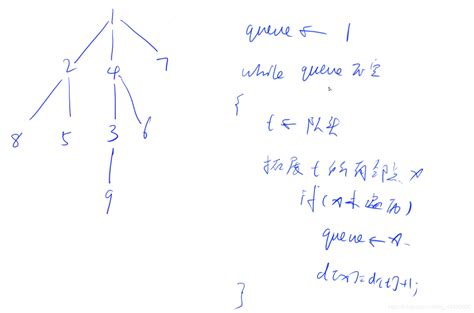 1
2 4 7
8 5 3 6
9
queue ← 1
while queue 不空
{
t ← 队头
拓展 t 的所有邻点 x
if (x 未遍历)
queue ← x
d[x] = d[t] + 1;
}